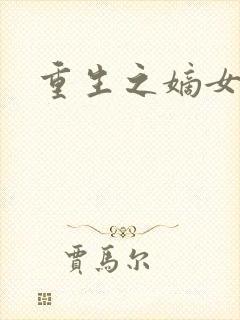 重生之嫡女
賈馬尔